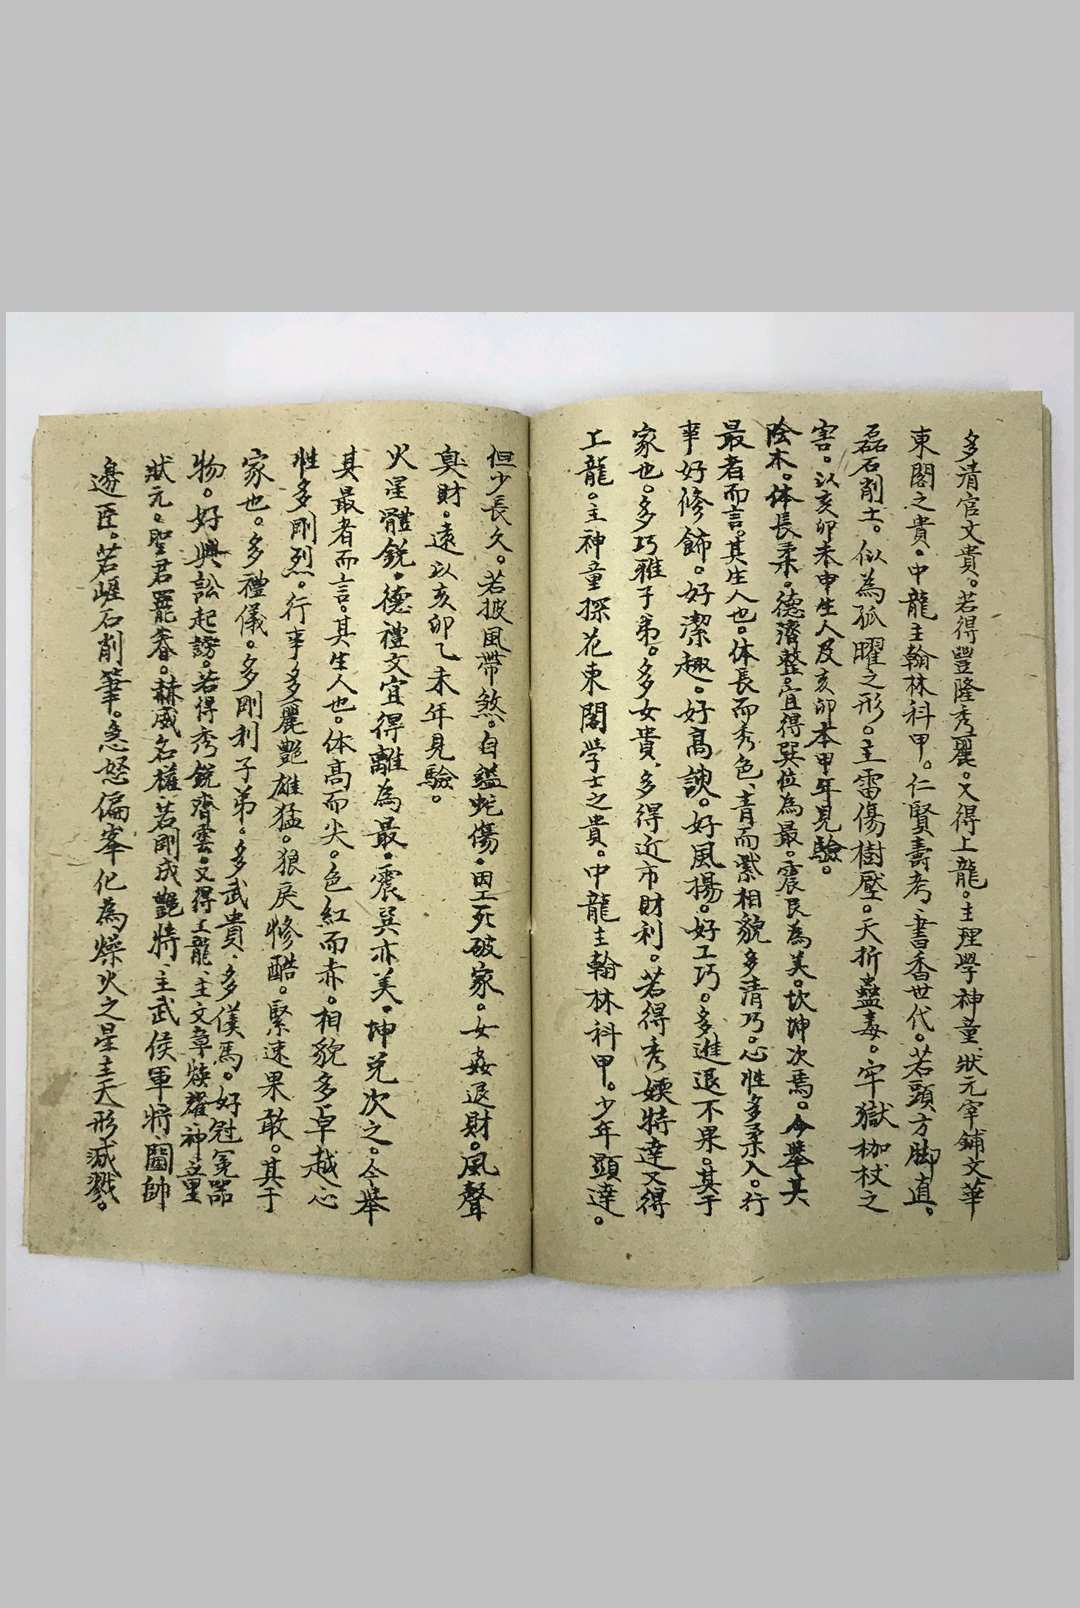 多清官文貴。若得豐隆秀麗。又得上龍。主理學神童、狀元宰鋪文華
東閣之貴。中龍主翰林科甲。仁賢壽考。書香世代。若頭方脚直。
磊石削土。似為孤曜之形。主雷傷樹壓。夭折蠱毒。牢獄枷杖之
害。以亥卯未申生人及亥卯本甲年見驗。
陰木。体長柔。德濟整。宜得巽位為最。震艮為美。坎坤次焉。今舉其
最者而言。其生人也。体長而秀色、青而紫相貌多清巧。心性多柔入。行
事好修飾。好潔趣。好高談。好風揚。好工巧。多進退不果。其于
家也。多巧雅子弟。多女貴。多得近市財利。若得秀嫩特達又得
上龍。主神童探花東閣学士之貴。中龍主翰林科甲。少年顯達。
但少長久。若披風帶煞。自縊蛇傷。因工死破家。女姦退財。風聲
臭財。遠以亥卯乙未年見驗。
火星體銳。德禮文宜得離為最。震巽亦美。坤兌次之。今舉
其最者而言。其生人也。体高而尖。色紅而赤。相貌多卓越心
性多剛烈。行事多麗艷雄猛。狼戾慘酷。緊速果敢。其于
家也。多禮儀。多剛利子弟。多武貴、多僕馬。好冠冕器
物。好興訟起謗。若得秀銳齊雲。又得上龍、主文章煥耀神童
狀元。聖君寵眷。赫威名權。若剛成艷特、主武侯軍將、閫帥
邊臣。若崕石削筆。急怒偏峯化為燥火之星主夭形滅戮。